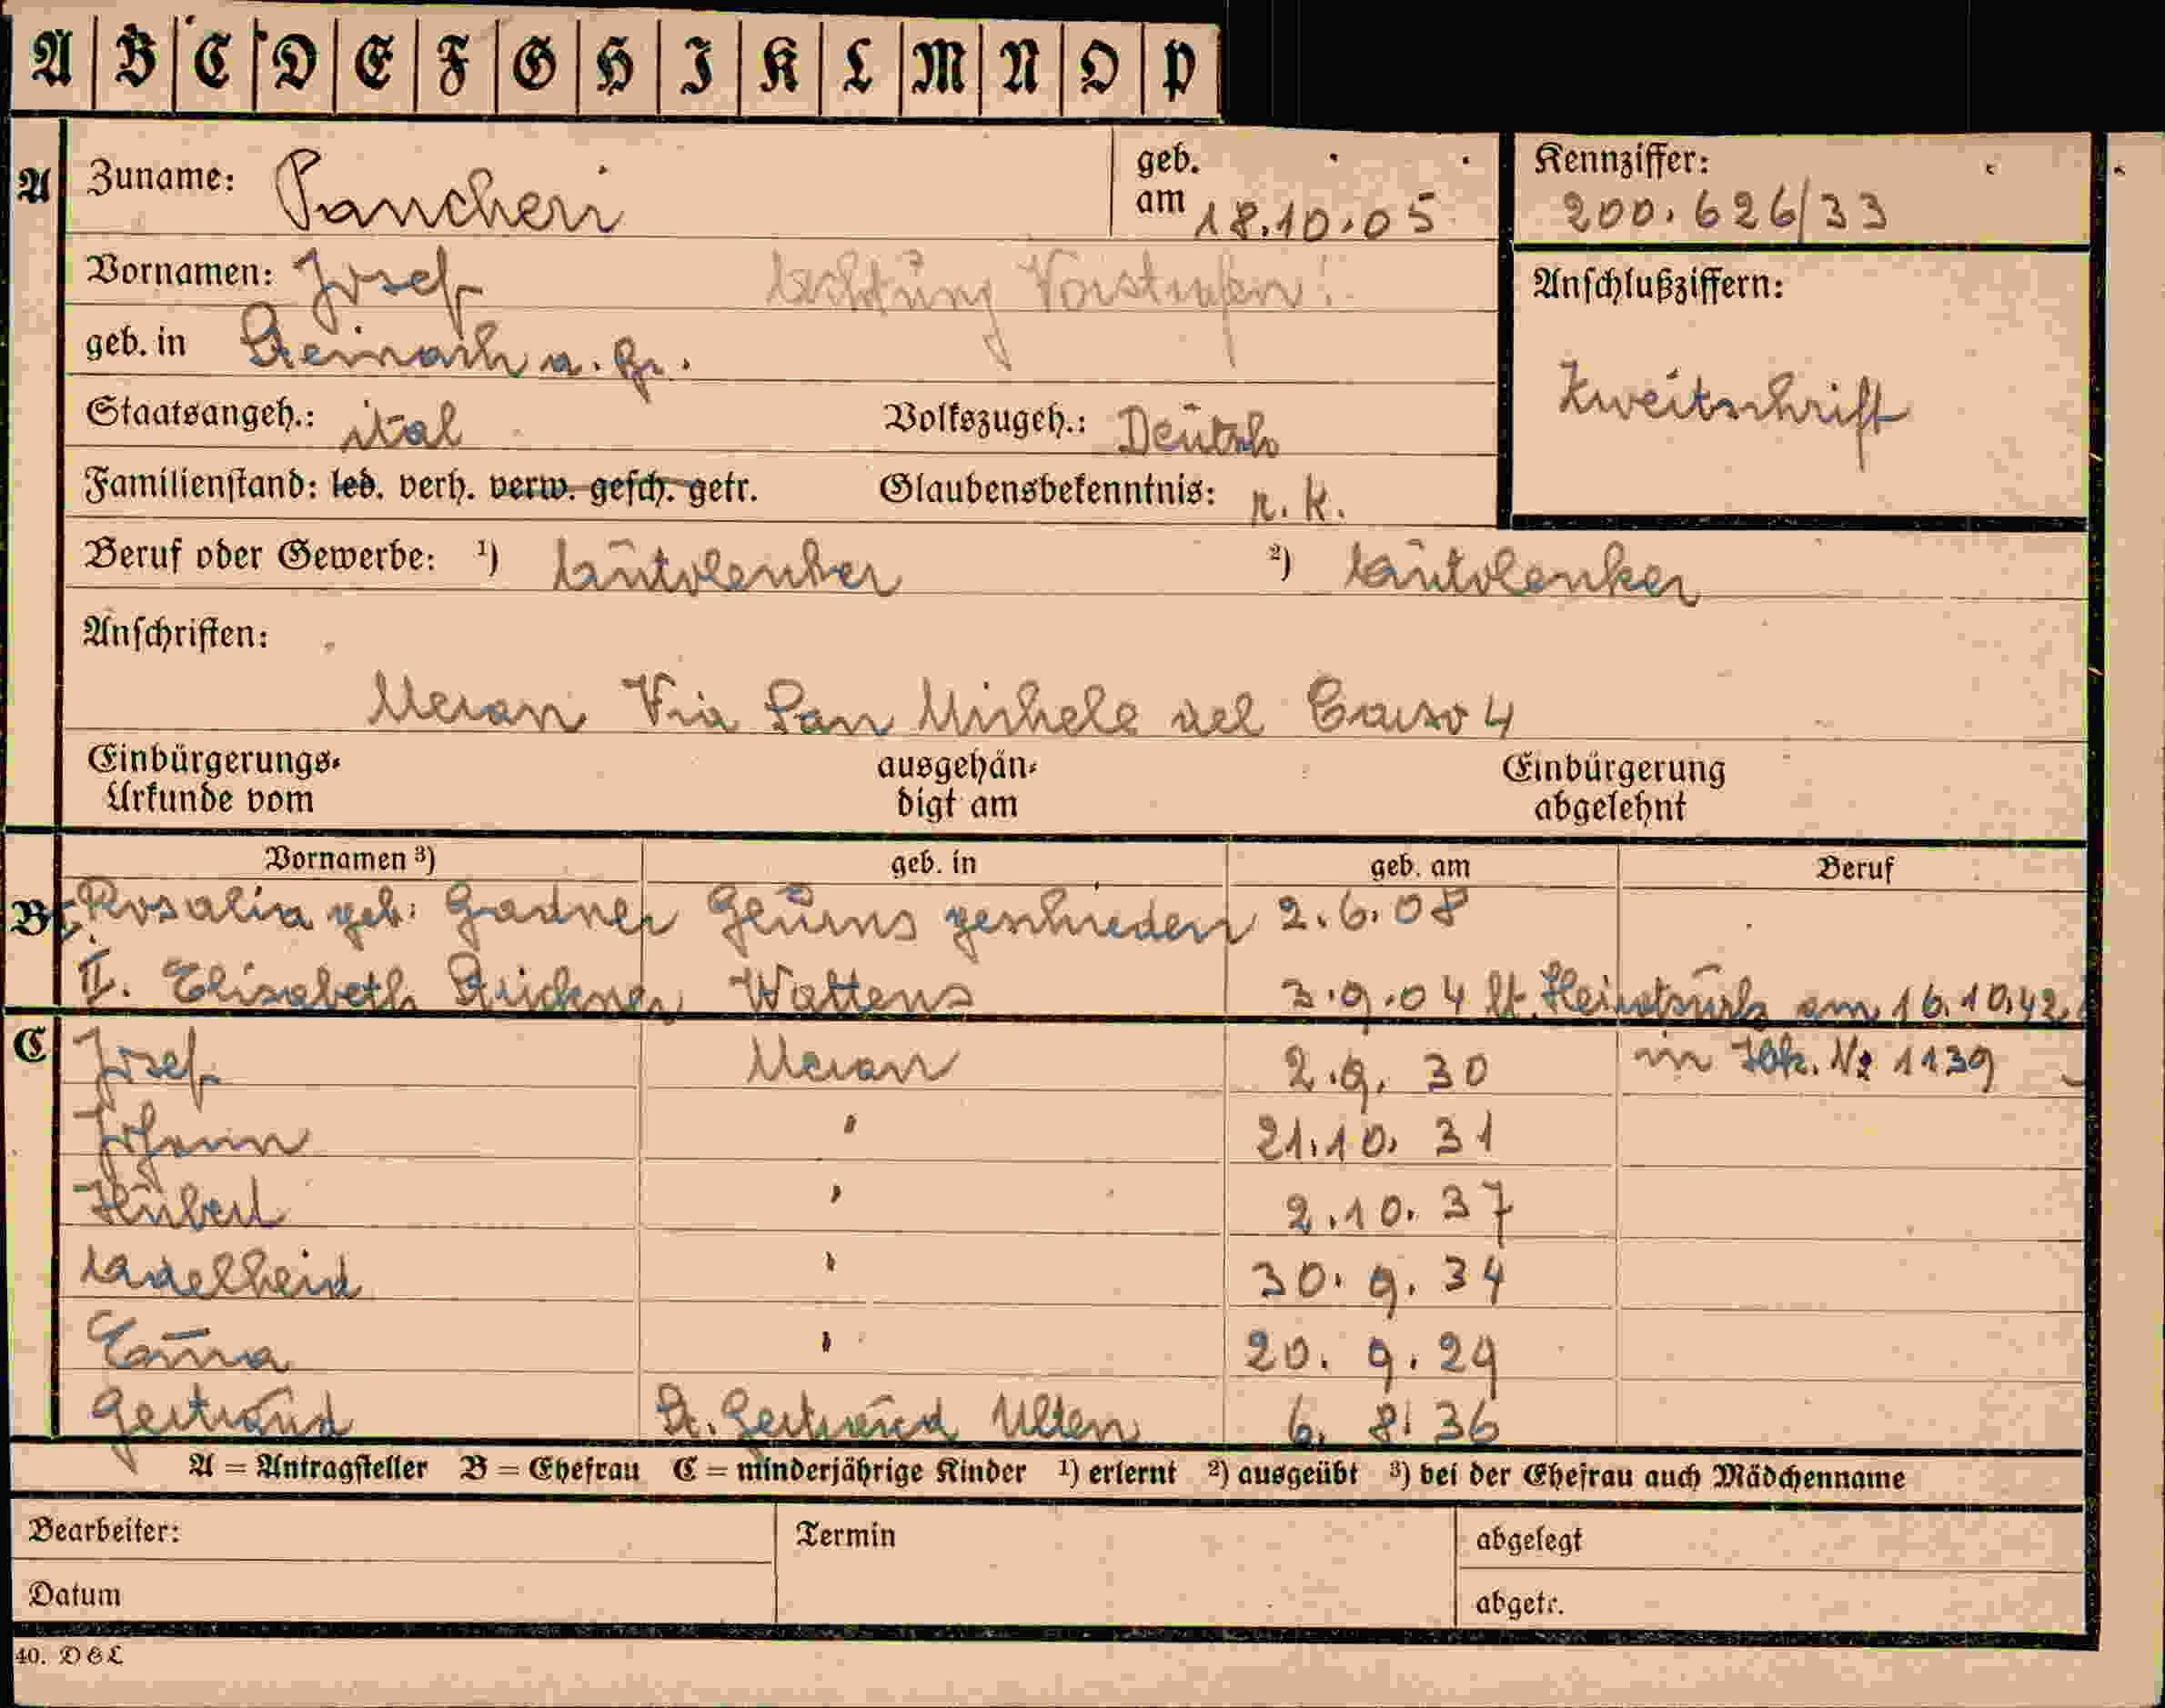 A B C D E F G H I K L M N O P
A Zuname: Pancheri geb. am 18.10.05 Kennziffer: 200.626/33
Vornamen: Josef Achtung Vorstrafen! Anschlußziffern:
geb. in Steinach a. Br. Zweitschrift
Staatsangeh.: ital Volkszugeh.: Deutsch
Familienstand: led. verh. verw. gesch. getr. Glaubensbekenntnis: r. k.
Beruf oder Gewerbe: 1) Autolenker 2) Autolenker
Anschriften:
Meran Via San Michele del Carso 4
Einbürgerungs- ausgehän- Einbürgerung
Urkunde vom digt am abgelehnt
Vornamen 3) geb. in geb. am Beruf
B I. Rosalia geb. Gadner Glurns geschieden 2.6.08
II. Elisabeth Strickner Wattens 3.9.04 lt. Heiratsurk am 16.10.42.
C Josef Meran 2.9. 30 in Ibk. Nr 1139
Johann " 21.10. 31
Hubert " 2.10. 37
Adelheid " 30. 9. 34
Emma " 20. 9. 29
Gertraud St. Gertraud Ulten 6. 8. 36
A = Antragsteller B = Ehefrau C = minderjährige Kinder 1) erlernt 2) ausgeübt 3) bei der Ehefrau auch Mädchenname
Bearbeiter: Termin abgelegt
Datum abgetr.
40. D & L